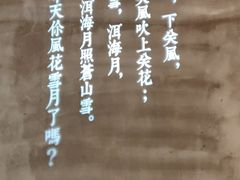 ，下关風，
关風吹上关花；
雪，洱海月，
洱海月照蒼山雪。
天你風花雪月了嗎？